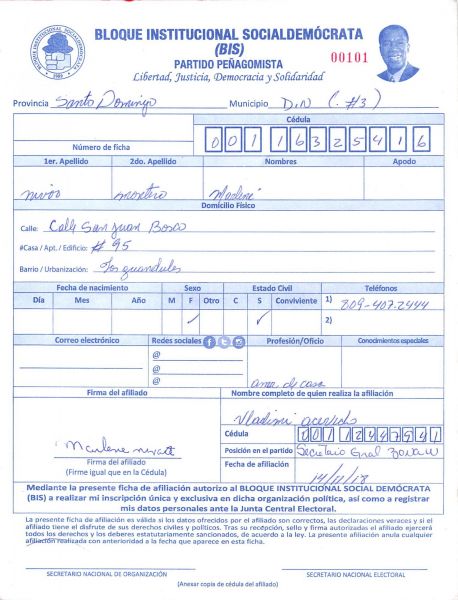 BLOQUE INSTITUCIONAL SOCIALDEMÓCRATA
(BIS)
PARTIDO PEÑAGOMISTA
Libertad, Justicia, Democracia y Solidaridad
00101
Provincia Santo Domingo Municipio D.N (#3)
Cédula
Número de ficha 001 1632541 6
1er. Apellido 2do. Apellido Nombres Apodo
Marleni
Domicilio Físico
Calle: Calle San Juan Bosco
#Casa / Apt. / Edificio: # 95
Barrio / Urbanización: Los guandules
Fecha de nacimiento Sexo Estado Civil Teléfonos
Día Mes Año M F Otro C S Conviviente 1) 809-407-2444
✓ ✓ 2)
Correo electrónico Redes sociales Profesión/Oficio Conocimientos especiales
@
@
@ ama de casa
Firma del afiliado Nombre completo de quien realiza la afiliación
Vladimi
Cédula 001 1244794 1
Marlene
Posición en el partido Secretario Gral Zona W
Firma del afiliado
(Firme igual que en la Cédula)
Fecha de afiliación
Mediante la presente ficha de afiliación autorizo al BLOQUE INSTITUCIONAL SOCIAL DEMÓCRATA
(BIS) a realizar mi inscripción única y exclusiva en dicha organización política, así como a registrar
mis datos personales ante la Junta Central Electoral.
La presente ficha de afiliación es válida si los datos ofrecidos por el afiliado son correctos, las declaraciones veraces y si el
afiliado tiene el disfrute de sus derechos civiles y políticos. Tras su recepción, sello y firma autorizadas el afiliado ejercerá
todos los derechos y los deberes estatutariamente sancionados, de acuerdo a la ley. La presente afiliación anula cualquier
afiliación realizada con anterioridad a la fecha que aparece en esta ficha.
SECRETARIO NACIONAL DE ORGANIZACIÓN SECRETARIO NACIONAL ELECTORAL
(Anexar copia de cédula del afiliado)